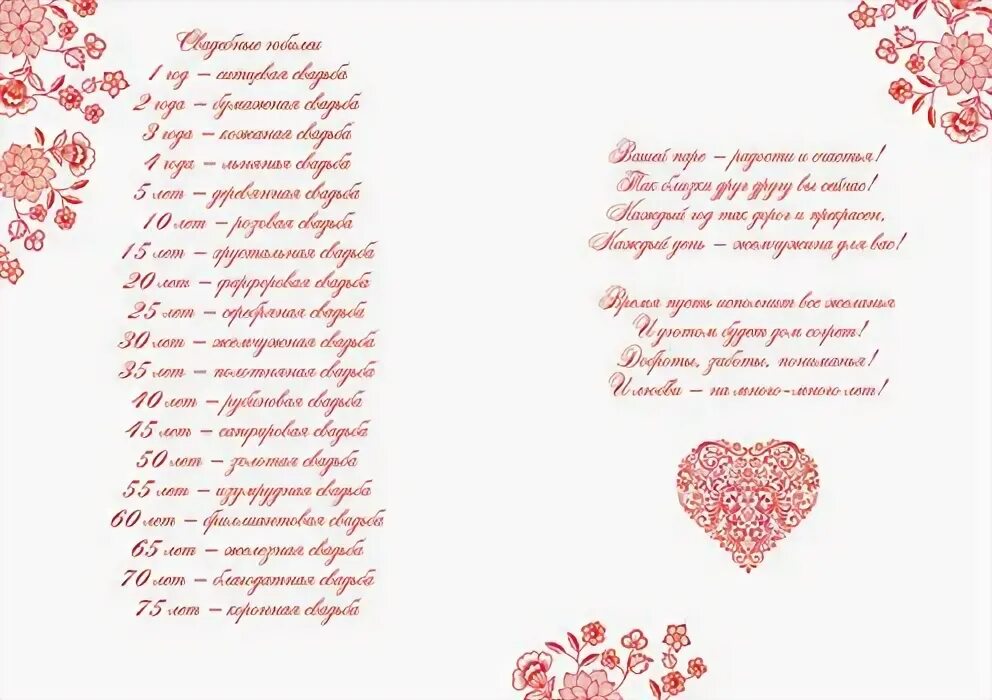 Свадебные юбилеи
1 год – ситцевая свадьба
2 года – бумажная свадьба
3 года – кожаная свадьба
4 года – льняная свадьба
5 лет – деревянная свадьба
10 лет – розовая свадьба
15 лет – хрустальная свадьба
20 лет – фарфоровая свадьба
25 лет – серебряная свадьба
30 лет – жемчужная свадьба
35 лет – полотняная свадьба
40 лет – рубиновая свадьба
45 лет – сапфировая свадьба
50 лет – золотая свадьба
55 лет – изумрудная свадьба
60 лет – бриллиантовая свадьба
65 лет – железная свадьба
70 лет – благодатная свадьба
75 лет – коронная свадьба
Вашей паре – радости и счастья!
Так близки друг другу вы сейчас!
Каждый год так дорог и прекрасен,
Каждый день – жемчужина для вас!
Время пусть исполнит все желанья
И уютом будет дом согрет!
Доброты, заботы, пониманья!
И любви – на много-много лет!